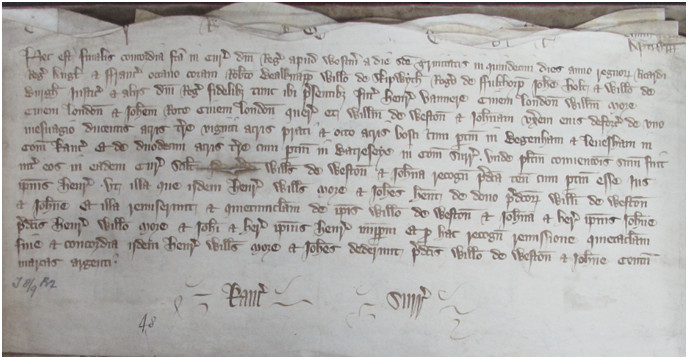 Hec est finalis concordia fca in Cur dni Reg apud Westm a die Sce Trinitatis in quindecim dies anno regnor Ricardi
Reg Angl & Franc octavo coram Robto Bealknapp Willo de Skipwyth Rogo de Fulthorp Johe Holt & Willo de
Burgh Justic & aliis dni Reg fidelib tunc ibi psentib Int Henr Vannere Civem London Willm More
Civem London & Johem Civem London quer et Willm de Weston & Johnam vxem eius deforc de vno
mesuagio ducentis acris tre viginti acris prati & octo acris bosci cum ptin in & Leuesham in
Com Kanc Et de duodecim acris tre cum ptin in Hacchesham in Com Surr Vnde plitm convencois sum fuit
int eos in eadem Cur Scilt qd pdci Wills de Weston & Johna recogn pdca ten cum ptin esse Ius
ipius Henr Vt illa que iidem Henr Wills More & Johes hent de dono pdcor Willi de Weston
& Johne Et illa remiserunt & quietumclam de ipis Willo de Weston & Johna & hed ipius Johne
pdcis Henr Willo More & Johi & hed ipius Henr imppm Et p hac recogn remissione quietaclam
fine & concordia iidem Henr Wills More & Johes dederunt pdcis Willo de Weston & Johne Centum
marcas argenti
Kanc Surr
48